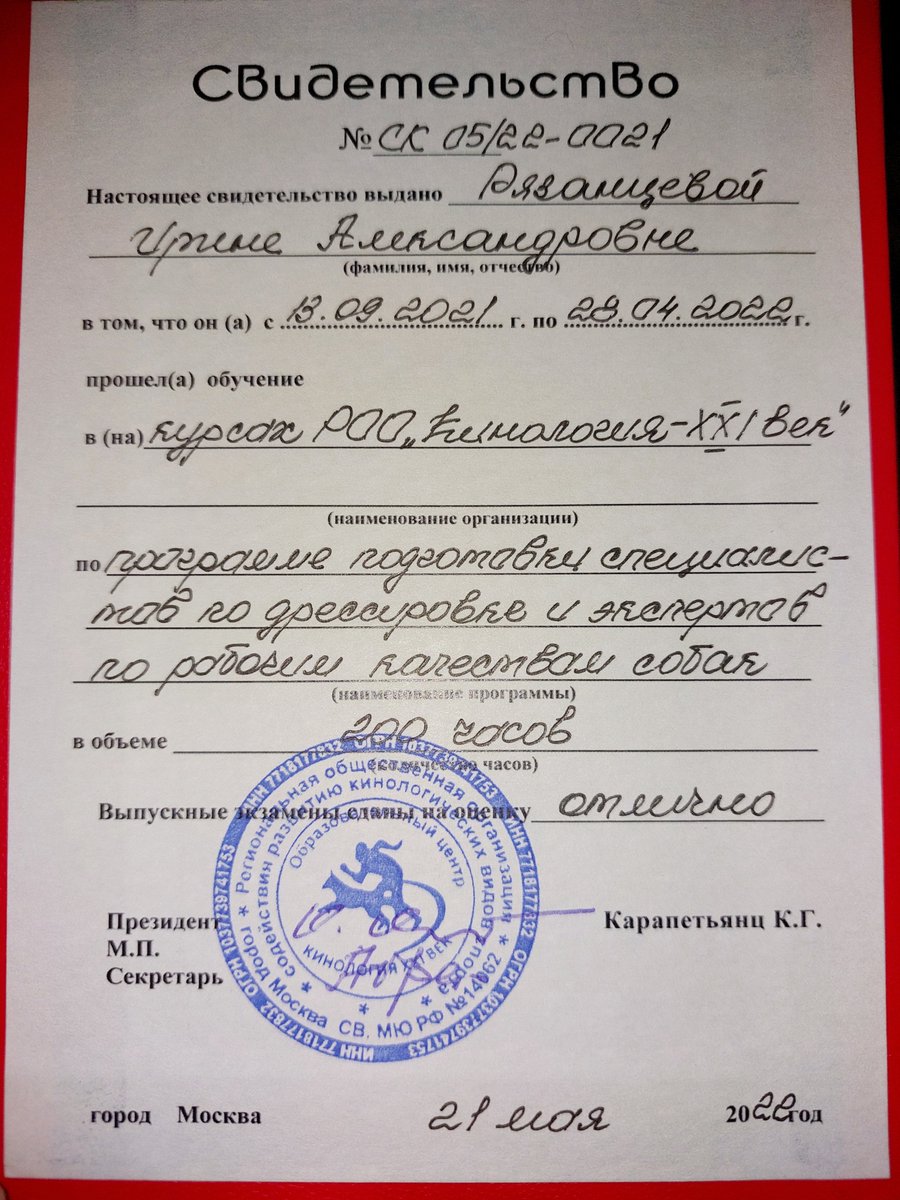 Свидетельство
№ СК 05/22-0021
Настоящее свидетельство выдано Рязанцевой
Ирине Александровне
(фамилия, имя, отчество)
в том, что он (а) с 13.09.2021 г. по 28.04.2022 г.
прошел(а) обучение
в (на) курсах РОО „Кинология-XXI век"
(наименование организации)
по программе подготовки специалис-
тов по дрессировке и экспертов
по рабочим качествам собак
(наименование программы)
в объеме 200 часов
(количество часов)
Выпускные экзамены сданы на оценку отлично
Президент Карапетьянц К.Г.
М.П.
Секретарь
ИНН 7718177832 ОГРН 1037739741753 ИНН 7718177832 ОГРН 1037739741753 ИНН 7718177832 ОГРН 1037739741753
город Москва * Региональная общественная организация * СВ. МЮ РФ №14062
содействия развитию кинологических видов спорта
Образовательный центр
КИНОЛОГИЯ XXI ВЕК
город Москва 21 мая 2022 год